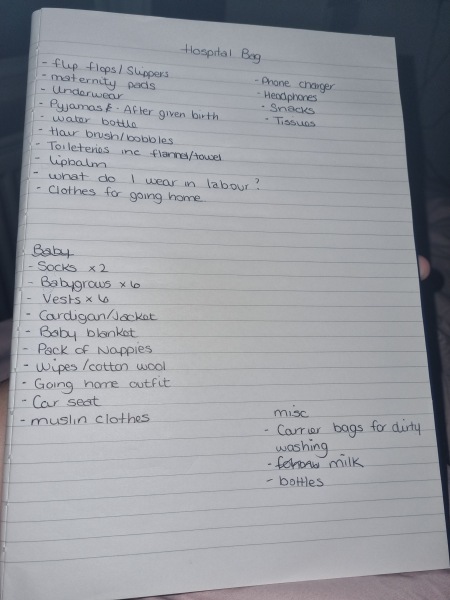 Hospital Bag
- flip flops/Slippers
- maternity pads
- Underwear
- Pyjamas & - After given birth
- water bottle
- Hair brush/bobbles
- Toileteries inc flannel/towel
- lipbalm
- what do I wear in labour?
- Clothes for going home
- Phone charger
- Headphones
- Snacks
- Tissues
Baby
- Socks x2
- Babygrows x 6
- Vests x 6
- Cardigan/Jacket
- Baby blanket
- Pack of Nappies
- Wipes/cotton wool
- Going home outfit
- Car seat
- muslin clothes
misc
- Carrier bags for dirty
washing
- milk
- bottles